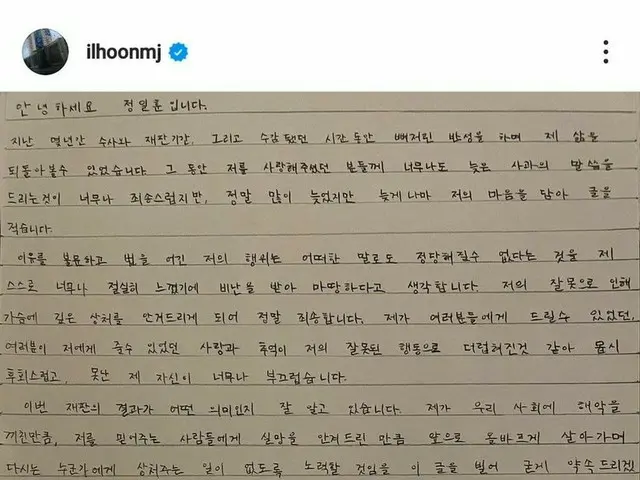 ilhoonmj
안녕하세요 정일훈입니다.
지난 몇년간 수사와 재판기간, 그리고 수감됐던 시간동안 뼈저린 반성을 하며 제 삶을
되돌아볼수 있었습니다 그 동안 저를 사랑해주셨던 분들께 너무나도 늦은 사과의 말씀을
드리는것이 너무나 죄송스럽지만, 정말 많이 늦었지만 늦게나마 저의 마음을 담아 글을
적습니다.
이유를 불문하고 법을 어긴 저의 행위는 어떠한 말로도 정당해질수 없다는 것을 제
스스로 너무나 절실히 느꼈기에 비난을 받아 마땅하다고 생각합니다. 저의 잘못으로 인해
가슴에 깊은 상처를 안겨드리게 되어 정말 죄송합니다. 제가 여러분들에게 드릴수 있었던,
여러분이 저에게 줄수 있었던 사랑과 추억이 저의 잘못된 행동으로 더럽혀진것 같아 몹시
후회스럽고, 못난 제 자신이 너무나 부끄럽습니다.
이번 재판의 결과가 어떤 의미인지 잘 알고 있습니다. 제가 우리 사회에 해악을
끼친만큼, 저를 믿어주는 사람들에게 실망을 안겨드린 만큼 앞으로 올바르게 살아가며
다시는 누군가에게 상처주는 일이 없도록 노력할 것임을 이 글을 빌어 굳게 약속드리겠